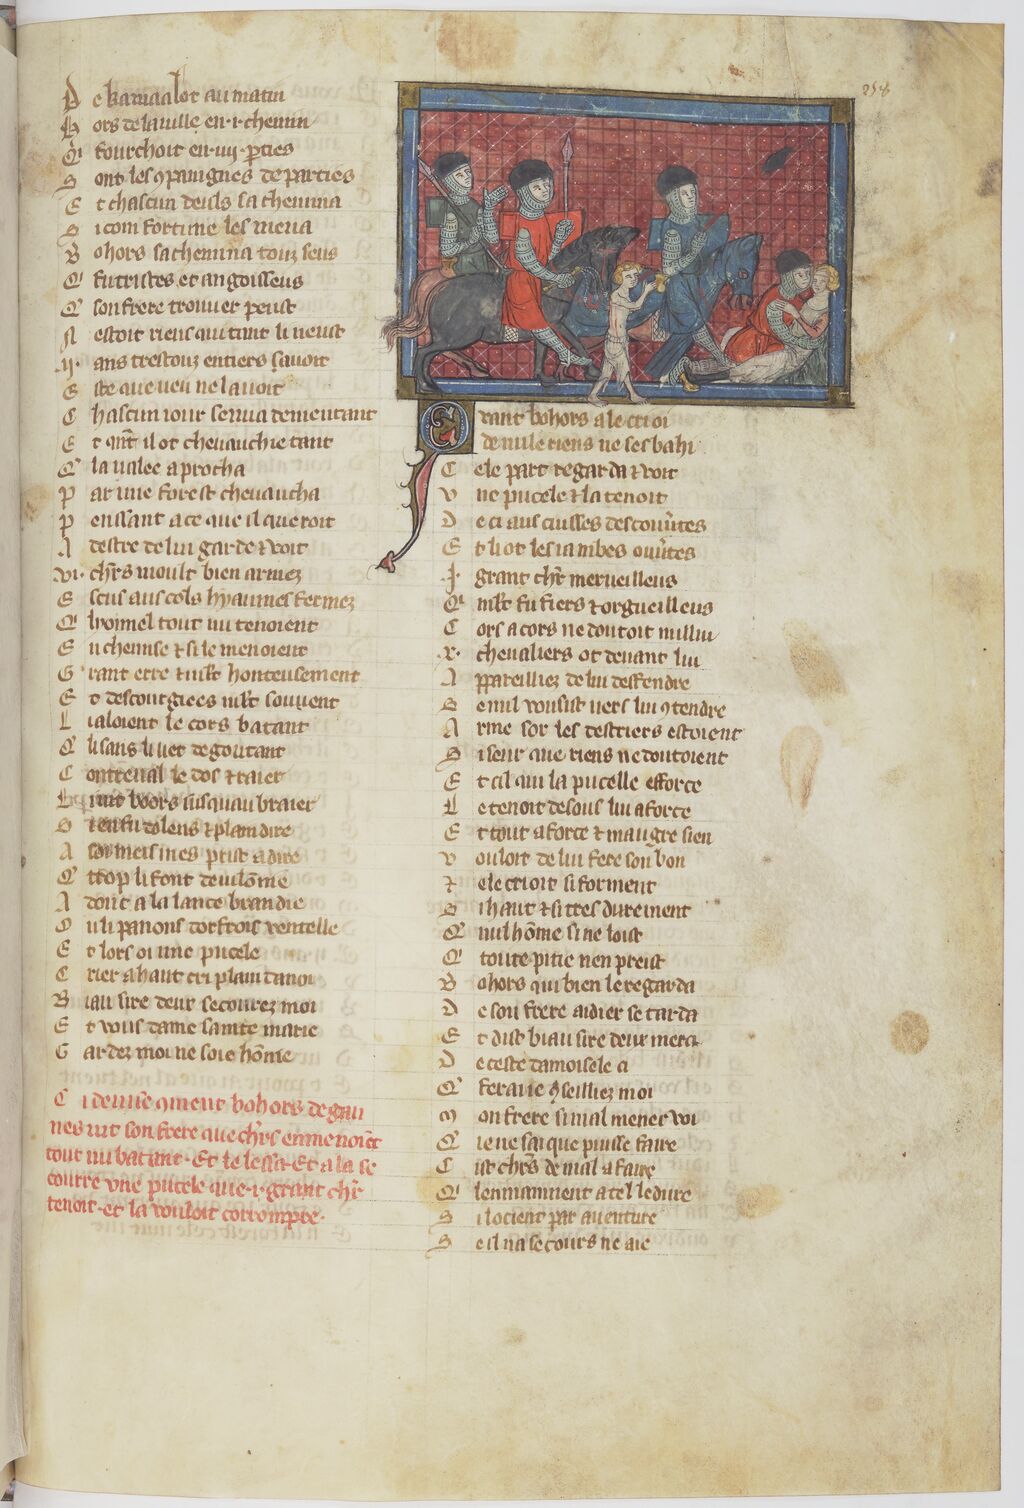 D e kamaalot au matin
H ors de la uille en .i. chemin
Q i fourchoit en .iiij. parties
S ont les compaignies departies
E t chascun deuls sachemina
S i com fortune les mena
B ohors sachemina touz seus
Q i fu tristes et angoisseus
Q son frere trouuer peust
N estoit riens qui tant li neust
.ij. ans trestouz entiers sauoit
Q ueu ne lauoit
C hascun iour se ua dementant
E t quant il ot cheuauchie tant
Q la ualee aprocha
P ar une forest cheuaucha
P enssant a ce que il queroit
A destre de lui garde et uoit
.vi. chrs moult bien armez
E scus aus cols hyaumes fermez
Q lyonnel tout nu tenoient
E n chemise et si le menoient
G rant erre et mlt honteusement
E t descourgiees mlt souuent
L i aloient le cors batant
Q li sans li uet degoutant
C ontreual le dos et raier
boors iusquau braier
S i en fu dolens et plain dire
A soi meismes prist a dire
Q trop li font de uilonnie
A dont a la lance brandie
O u li panons dorfrois uentelle
E t lors oi une pucele
C rier a haut cri plain danoi
B iau sire deux secourez moi
E t vous dame sainte marie
G ardez moi ne soie honnie
C i deuise coment bohors de gau
nes uit son frere que chrs enmenoiet
tout nu batant. Et le lessa. Et ala se
courre vne pucele que .i. grant chr
tenoit. et la uouloit corrompre.
258
Q uant bohors a le cri oi
de nule riens ne sesbahi
C ele part regarda et voit
V ne pucele et la tenoit
D eci aus cuisses descouuertes
E t li ot les iambes ouuertes
.I. grant chr merueilleus
Q mlt fu fiers et orgueilleus
C ors a cors ne doutoit nullui
.x. cheualiers ot deuant lui
A ppareilliez de lui desfendre
S e nul uousist uers lui contendre
A rme sor les destriers estoient
S i seur que riens ne doutoient
E t cil qui la pucelle efforce
L e tenoit desous lui a force
E t tout a force et maugre sien
V ouloit de lui fere son bon
Z ele crioit si forment
S i haut et si tres durement
Q nul home si ne loist
Q toute pitie nen preist
B ohors qui bien le regarda
D e son frere aidier se tarda
E t dist biau sire deux merci
D e ceste damoisele ci
Q feraie conseilliez moi
M on frere si mal mener voi
Q ie ne sai que puisse faire
C ist chrs de mal afaire
Q lenmainnent a tel ledure
S i locient par auenture
S e il na secours ne aie